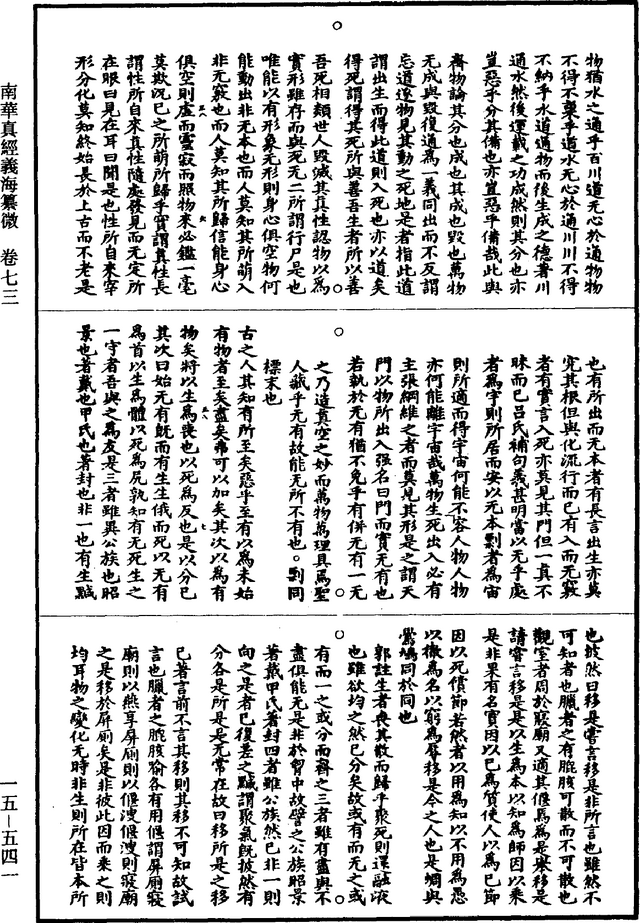 南華真經義海纂微 卷七三
一五—五四一
物猶水之通乎百川道无心於通物物
不得不稟乎道水无心於通川川不得
不納乎水道通物而後生成之德著川
通水然後運載之功成然則其分也亦
豈惡乎分其備也亦豈惡乎備哉此與
齊物論其分也成也其成也毀也萬物
无成與毀復通為一義同出而不反謂
忘道逐物見其動之死地是者指此道
謂出生而得此道則入死也亦以道矣
得死謂得其死所與善吾生者所以善
吾死相類世人毀滅其真性認物以為
實形雖存而與死无二所謂行尸是也
唯能以有形象无形則身心俱空物何
能動出非无本也而人莫知其所萌入
非无竅也而人莫知其所歸信能身心
俱空則虛而靈寂而照物來必鑑一毫
莫欺況已之所萌所歸乎實謂真性長
謂性所自來真性隨處發見而无定所
在眼曰見在耳曰聞是也性所自來宰
形分化莫知終始長於上古而不老是
也有所出而无本者有長言出生亦莫
究其根但與化流行而已有入而无竅
者有實言入死亦莫見其門但一真不
昧而已呂氏補句義甚明當以无乎處
者為宇則所居而安以无本剽者為宙
則所適而得宇宙何能不容人物人物
亦何能離宇宙哉萬物生死出入必有
主張綱維之者而莫見其形是之謂天
門以物所出入強名曰門而實无有也
若執於无有猶不免乎有併无有一无
之乃造真空之妙而萬物萬理具焉聖
人藏乎无有故能无所不有也。剽同
標末也
古之人其知有所至矣惡乎至有以為未始
有物者至矣盡矣弗可以加矣其次以為有
物矣將以生為喪也以死為反也是以分已
其次曰始无有既而有生生俄而死以无有
為首以生為體以死為尻孰知有无死生之
一守者吾與之為友是三者雖異公族也昭
景也著戴也甲氏也著封也非一也有生黬
也披然曰移是嘗言移是非所言也雖然不
可知者也臘者之有膍胲可散而不可散也
觀室者周於寢廟又適其偃焉為是舉移是
請嘗言移是是以生為本以知為師因以乘
是非果有名實因以己為質使人以為己節
因以死償節若然者以用為知以不用為愚
以徹為名以窮為辱移是今之人也是蜩與
鷽鳩同於同也
郭註生者喪其散而歸乎聚死則還融液
也雖欲均之然已分矣故或有而无之或
有而一之或分而齊之三者雖有盡與不
盡俱能无是非於胷中故譬之公族昭景
著戴甲氏著封四者雖公族然已非一則
向之是者已復差之黬謂聚氣既披然有
分各是所是是无常在故曰移所是之移
已著言前不言其移則其移不可知故試
言也臘者之膍胲猶各有用偃謂屏廁寢
廟則以燕享屏廁則以偃溲偃溲則寢廟
之是移於屏廁矣是非彼此因而乘之則
均耳物之變化无時非生則所在皆本所